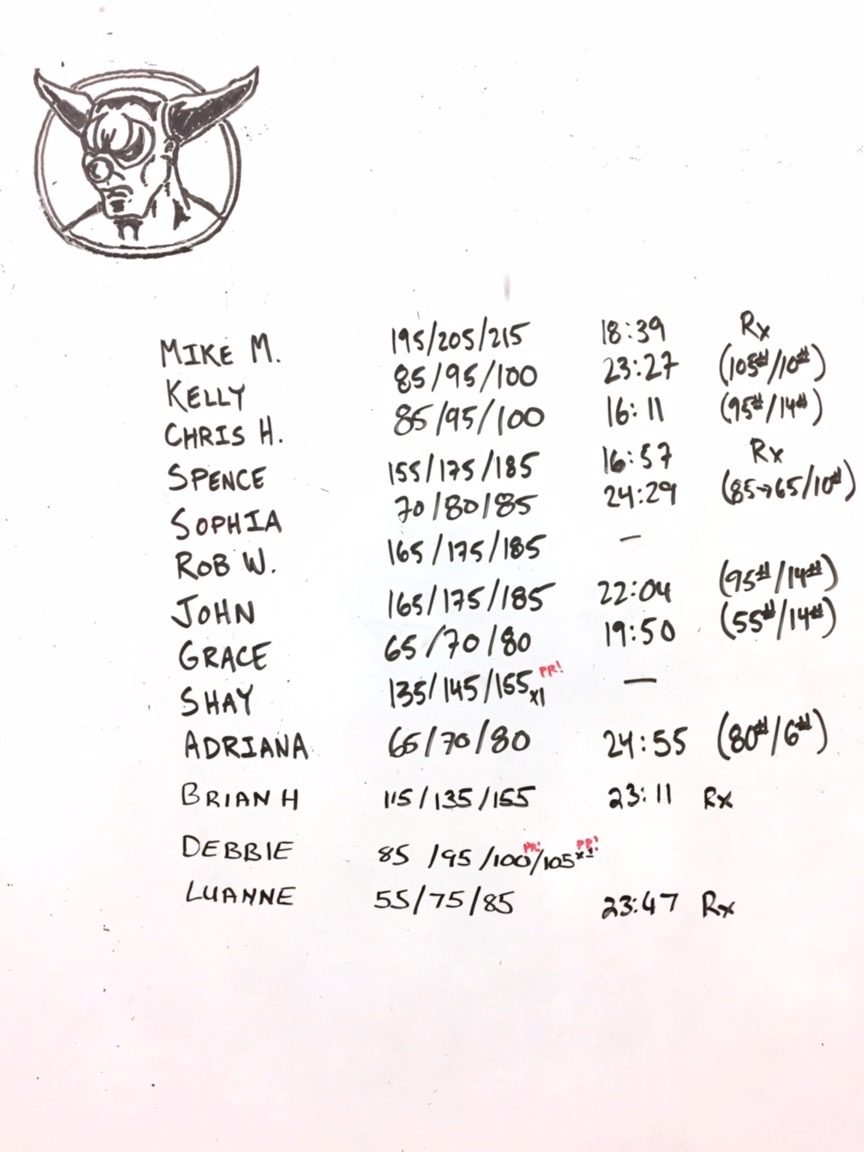 MIKE M. 195/205/215 18:39 Rx
KELLY 85/95/100 23:27 (105#/10#)
CHRIS H. 85/95/100 16:11 (95#/14#)
SPENCE 155/175/185 16:57 Rx
SOPHIA 70/80/85 24:29 (85→65/10#)
ROB W. 165/175/185 —
JOHN 165/175/185 22:04 (95#/14#)
GRACE 65/70/80 19:50 (55#/14#)
SHAY 135/145/155x1 PR! —
ADRIANA 65/70/80 24:55 (80#/6#)
BRIAN H 115/135/155 23:11 Rx
DEBBIE 85/95/100 PR!/105x2 PR!
LUANNE 55/75/85 23:47 Rx